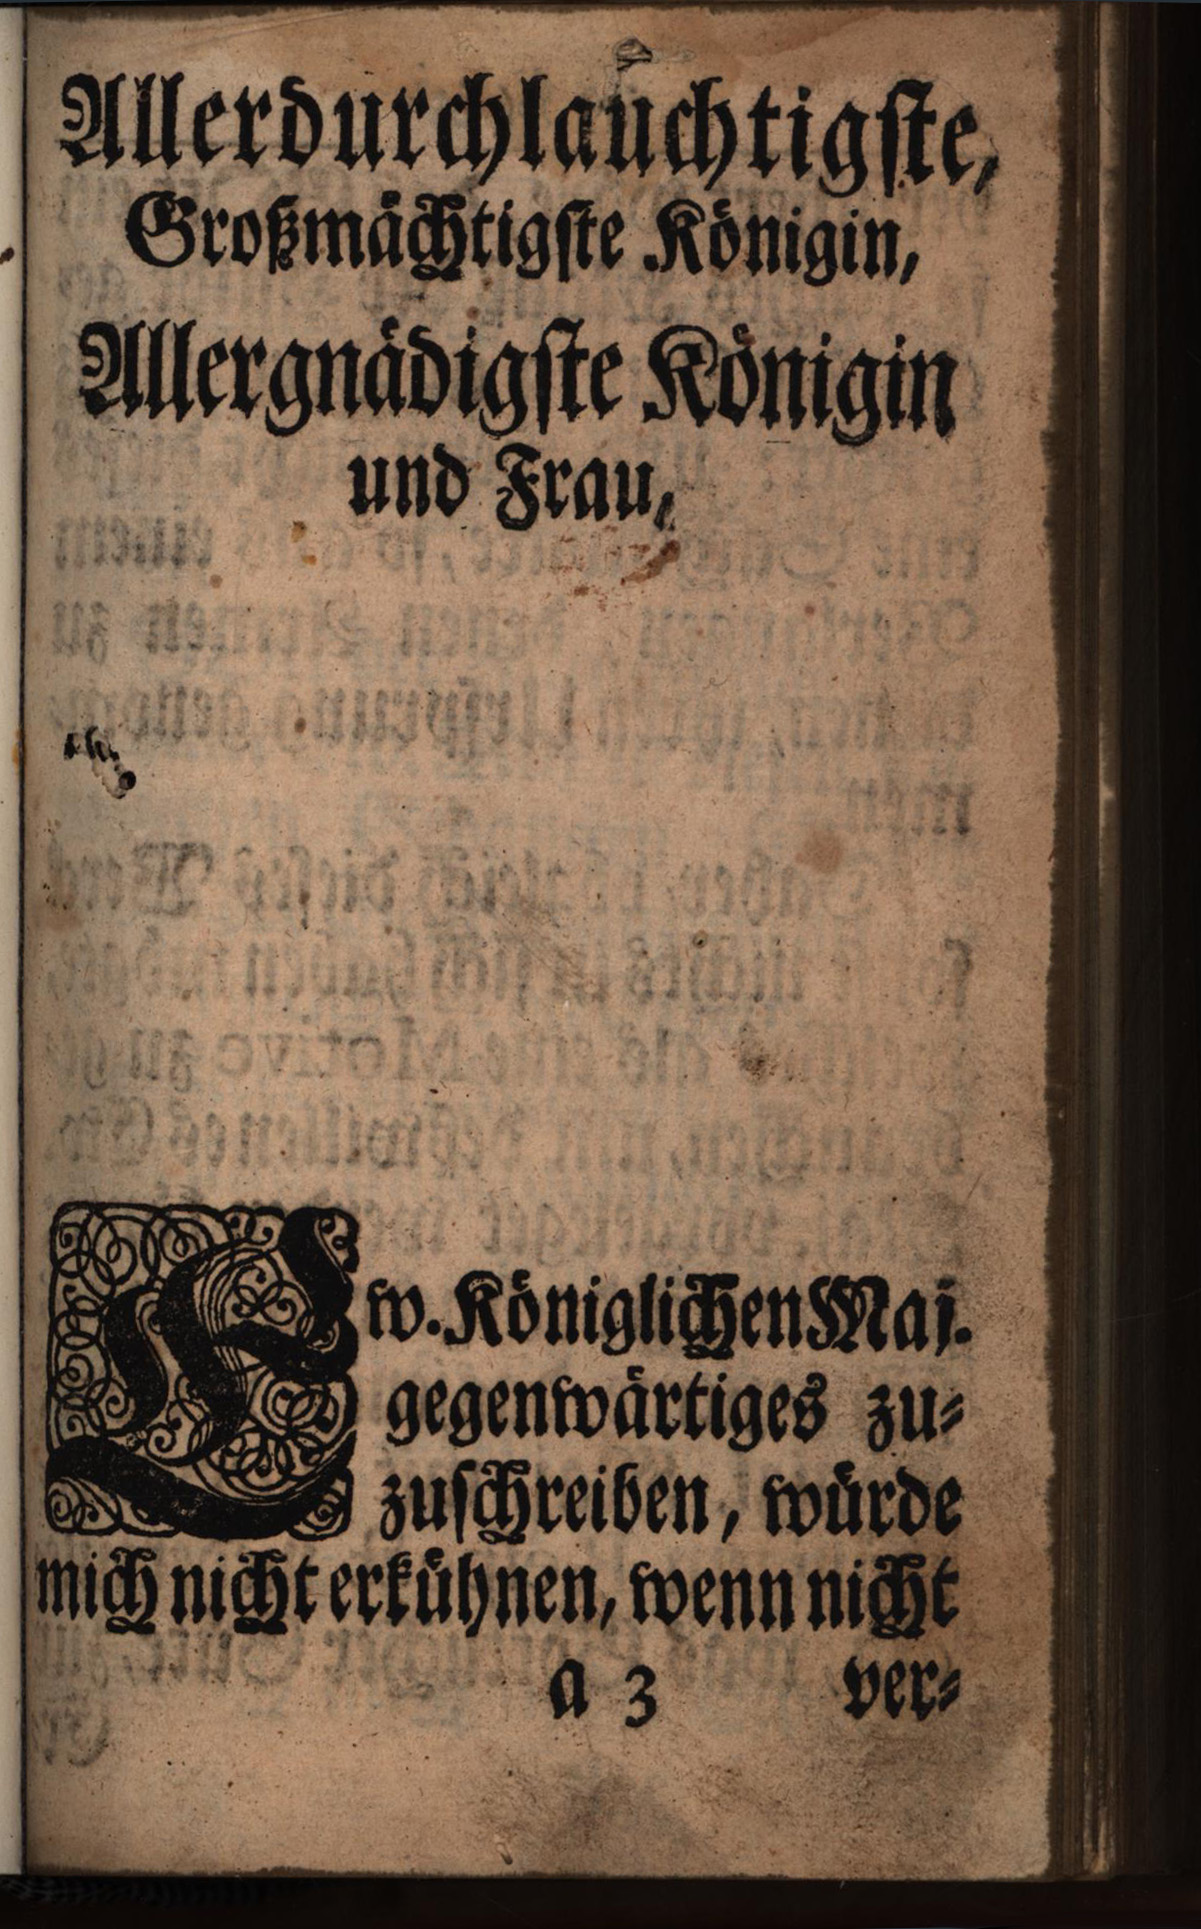 Allerdurchlauchtigſte,
Großmächtigſte Königin,
Allergnädigſte Königin
und Frau,
Ew. Königlichen Maj.
gegenwärtiges zu⸗
zuſchreiben, würde
mich nicht erkühnen, wenn nicht
a 3 ver⸗